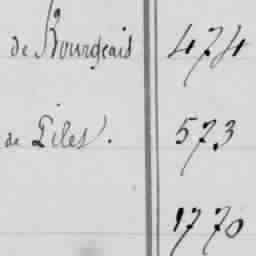 de Bourgeais 474
de Piles. 573
1770